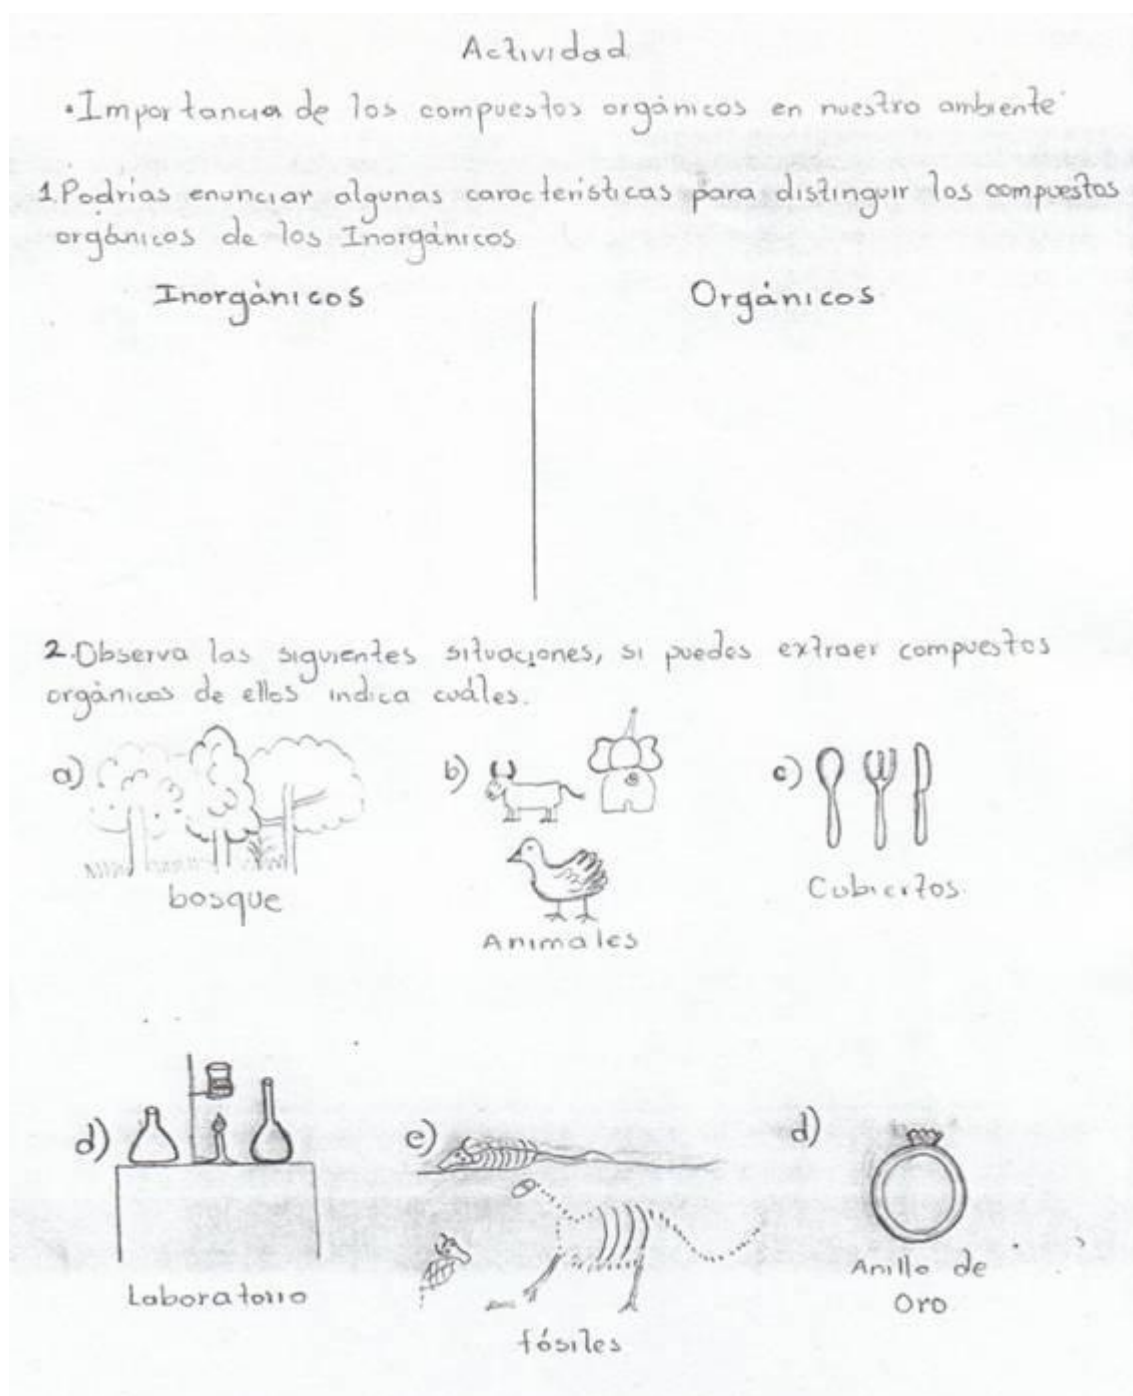 Actividad
• Importancia de los compuestos orgánicos en nuestro ambiente
1. Podrías enunciar algunas características para distinguir los compuestos
orgánicos de los Inorgánicos
Inorgánicos Orgánicos
2. Observa las siguientes situaciones, si puedes extraer compuestos
orgánicos de ellos indica cuáles.
a) b) c)
bosque Animales Cubiertos
d) e) d)
Laboratorio fósiles Anillo de
Oro